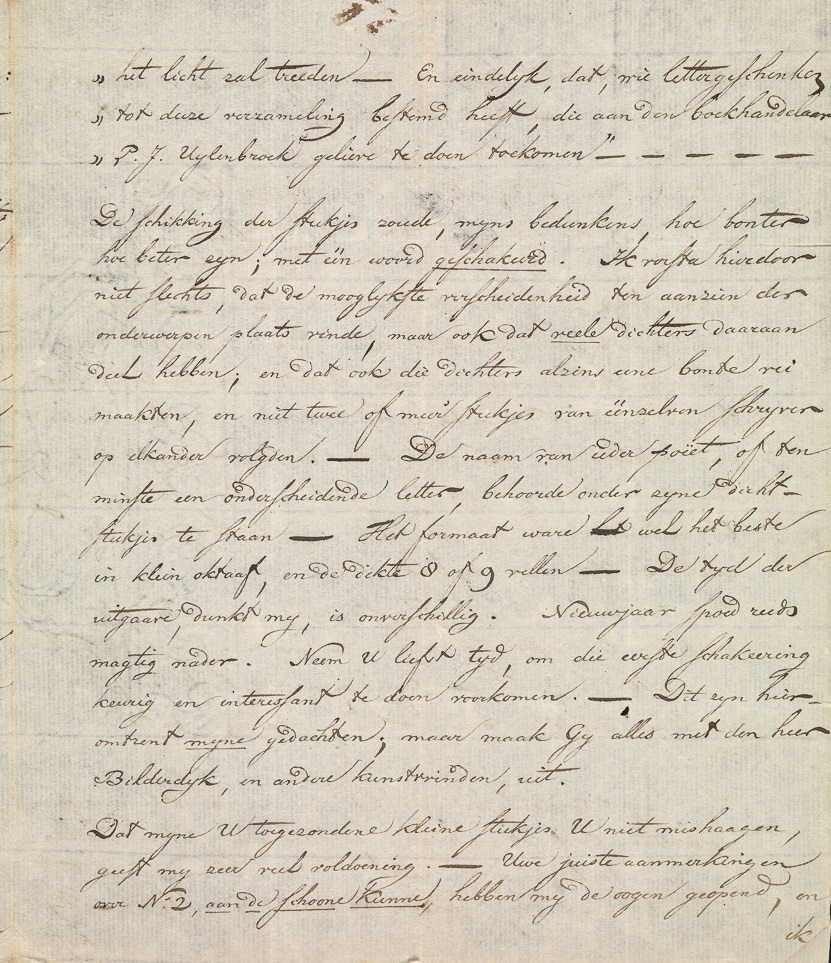 „ het licht zal treeden — En eindelyk, dat, wie lettergeschenken
„ tot deeze verzameling bestemd heeft, die aan den boekhandelaar
„ P. J. Uylenbroek gelieve te doen toekomen" — — — — —
De schikking der stukjes zoude, myns bedunkens, hoe bonter
hoe beter zyn; met één woord geschakeerd. Ik versta hierdoor
niet slechts, dat de mooglykste verscheidenheid ten aanzien der
onderwerpen plaats vinde, maar ook dat veele dichters daaraan
deel hebben; en dat ook die dichters alzins eene bonte rei
maakten, en niet twee of meer stukjes van éénzelven schryver
op elkander volgden. — De naam van ieder poëet, of ten
minste een onderscheidende letter, behoorde onder zyne dicht-
stukjes te staan — Het formaat ware wel het beste
in klein oktaaf, en de dikte 8 of 9 vellen — De tyd der
uitgaave, dunkt my, is onverschillig. Nieuwjaar spoed reeds
magtig nader. Neem U liefst tyd, om die eerste schakeering
keurig en interessant te doen voorkomen. — Dit zyn hier-
omtrent myne gedachten; maar maak Gy alles met den heer
Bilderdyk, en andere kunstvrinden, uit.
Dat myne U toegezondene kleine stukjes U niet mishaagen,
geeft my zeer veel voldoening. — Uwe juiste aanmerkingen
over N.º 2, aan de schoone Kunne, hebben my de oogen geopend, en
ik